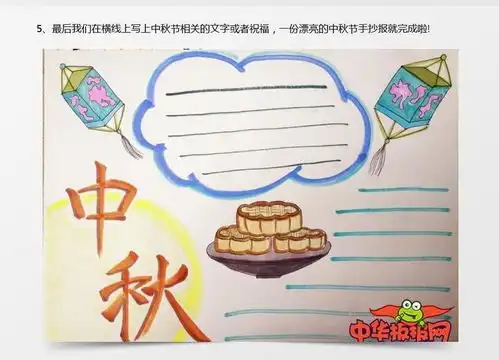 5、最后我们在横线上写上中秋节相关的文字或者祝福，一份漂亮的中秋节手抄报就完成啦!
中
秋
中华报报网